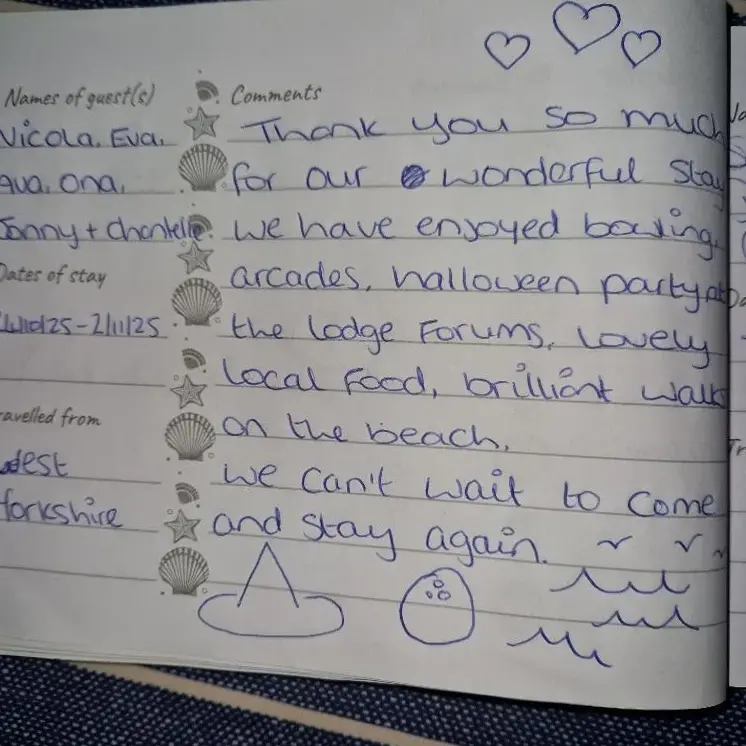 Names of guest(s)
Nicola, Eva,
Ona,
Jonny + Chantelle.
Dates of stay
/10/25 - 2/11/25
Travelled from
West
Yorkshire
Comments
Thank you so much
for our wonderful stay
we have enjoyed bowling,
arcades, halloween party at
the lodge Forums, Lovely
Local Food, brilliant walk
on the beach,
we can't wait to come
and stay again.